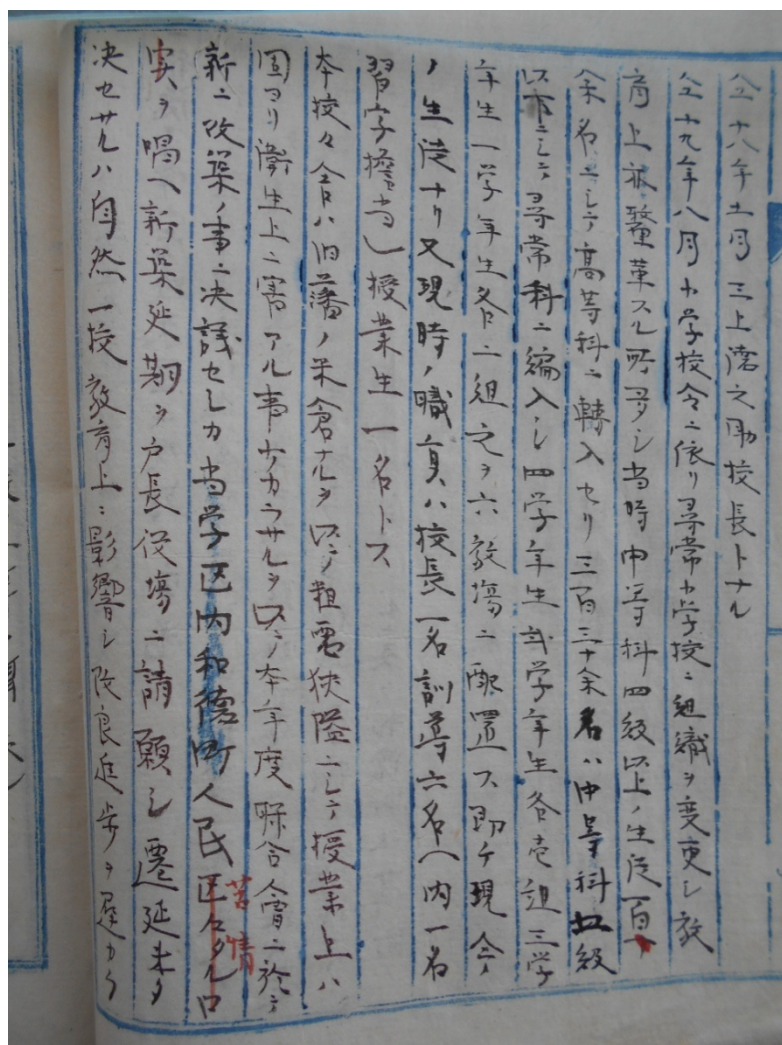 仝十八年十一月三上済之助校長トナル
仝十九年八月小学校令ニ依リ尋常小学校ニ組織ヲ変更シ教
育上被釐革スル所多シ当時中等科四級以上ノ生徒百
余名ニシテ高等科ニ轉入セリ三百三十余名ハ中等科五級
以下ニシテ尋常科ニ編入シ四学年生弐学年生各壱組三学
年生一学年生各二組之ヲ六教場ニ配置ス即チ現今
ノ生徒ナリ又現時ノ職員ハ校長一名訓導六名(内一名
習字擔当)授業生一名トス
本校々舎ハ旧藩ノ米倉ナルヲ以テ粗悪狹隘ニシテ授業上ハ
固ヨリ衛生上ニ害アル事少カラサルヲ以テ本年度聯合會ニ於テ
新ニ改築ノ事ニ决議セシカ当学区内和徳町人民区々タル口
苦情
実ヲ唱ヘ新築延期ヲ戸長役場ニ請願シ遷延未タ
决セサルハ自然一校教育上ニ影響シ改良進歩ヲ遅カラ